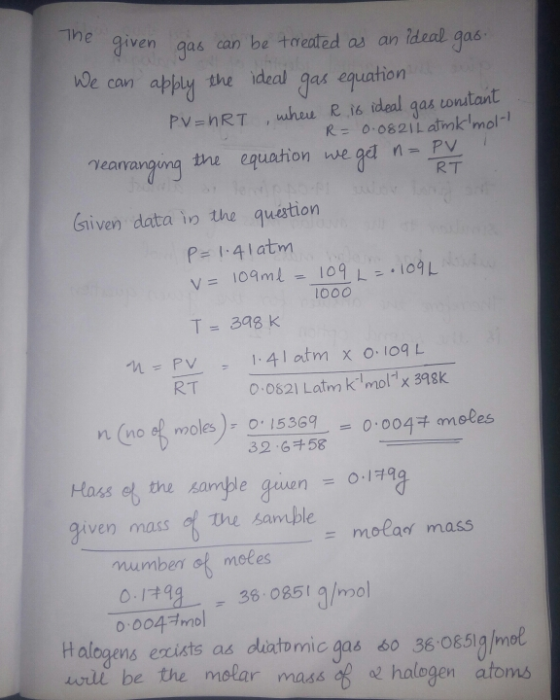 The given gas can be treated as an ideal gas.
We can apply the ideal gas equation
PV=nRT, where R is ideal gas constant
R = 0.0821 L atm k⁻¹ mol⁻¹
rearranging the equation we get n = PV/RT
Given data in the question
P = 1.41 atm
V = 109 ml = 109/1000 L = .109 L
T = 398 K
n = PV/RT = 1.41 atm x 0.109 L / 0.0821 L atm k⁻¹ mol⁻¹ x 398K
n (no of moles) = 0.15369/32.6758 = 0.0047 moles
Mass of the sample given = 0.179g
given mass of the sample / number of moles = molar mass
0.179g / 0.0047mol = 38.0851 g/mol
Halogens exists as diatomic gas so 38.0851g/mol
will be the molar mass of 2 halogen atoms